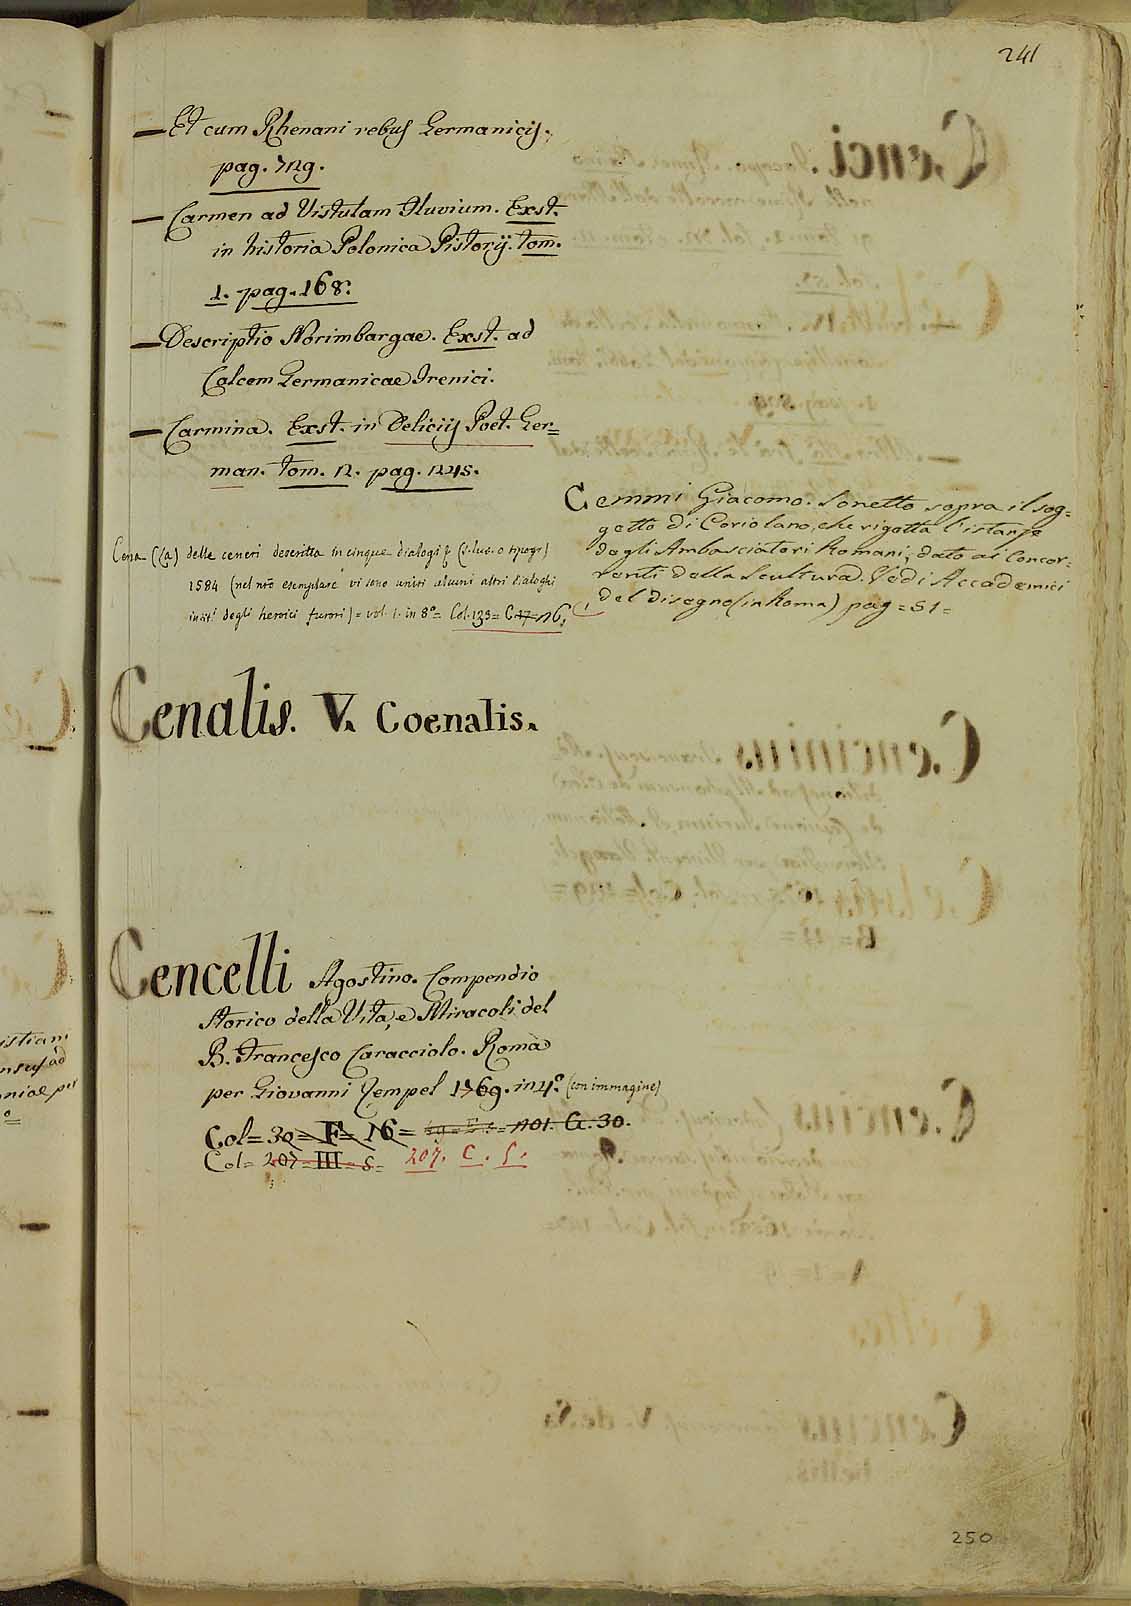 241
— Et cum Rhenani rebus Germanicis.
pag. 729.
— Carmen ad Vistulam Fluvium. Exst.
in historia Polonica Pistorij. tom.
1. pag. 168.
— Descriptio Norimbargae. Exst. ad
Calcem Germanicae Irenici.
— Carmina. Exst. in Delicijs Poet. Ger=
man. tom. 2. pag. 245.
Cemmi Giacomo. Sonetto sopra il sog=
getto di Coriolano, che rigotta l'istanze
degli Ambasciatori Romani, dato ai Concor=
renti della Scultura. Vedi Accademici
del Disegno (in Roma) pag = 51 =
Cena (La) delle ceneri descritta in cinque dialogi (s. luo. o tipogr)
1584 (nel nrō esemplare vi sono uniti alcuni altri dialoghi
intit! degli heroici furori) = vol. 1. in 8º = Col. 133 = C. 17 = 26.
Cenalis. V. Coenalis.
Cencelli Agostino. Compendio
Storico della Vita, e Miracoli del
B. Francesco Caracciolo. Roma
per Giovanni Zempel 1769. in 4º (con immagine)
Col = 30 = F = 16 = 201. G. 30.
Col = 207 = III = 5 = 207. C. 5.
250